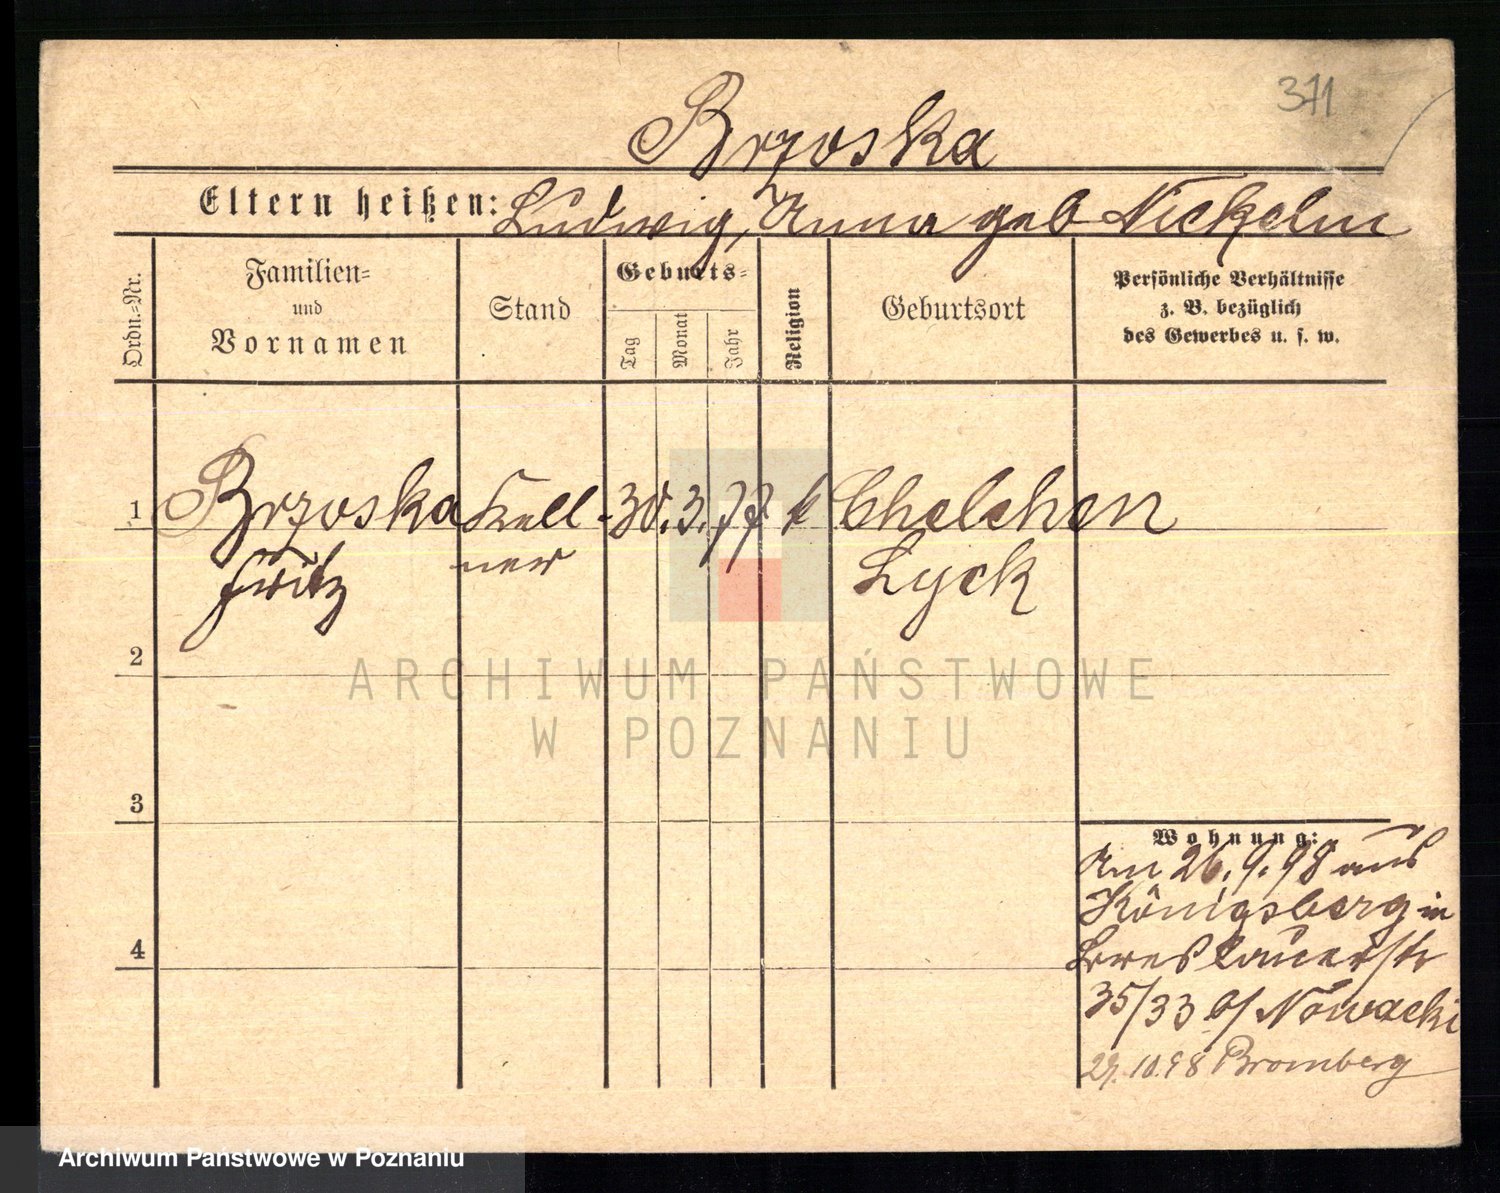 371
Brzoska
Eltern heißen: Ludwig, Anna geb Nickelm
Ordn.-Nr.
Familien-
und
Vornamen
Stand
Geburts-
Tag
Monat
Jahr
Religion
Geburtsort
Persönliche Verhältnisse
z. B. bezüglich
des Gewerbes u. s. w.
1 Brzoska Kell- 30. 3. 77 Chelchen
Fritz ner Lyck
2
3
4
Wohnung:
Am 26. 9. 98 aus
Königsberg in
Breslauerstr
35/33 b/ Nowacki
29. 10. 98 Bromberg
ARCHIWUM PAŃSTWOWE
W POZNANIU
Archiwum Państwowe w Poznaniu